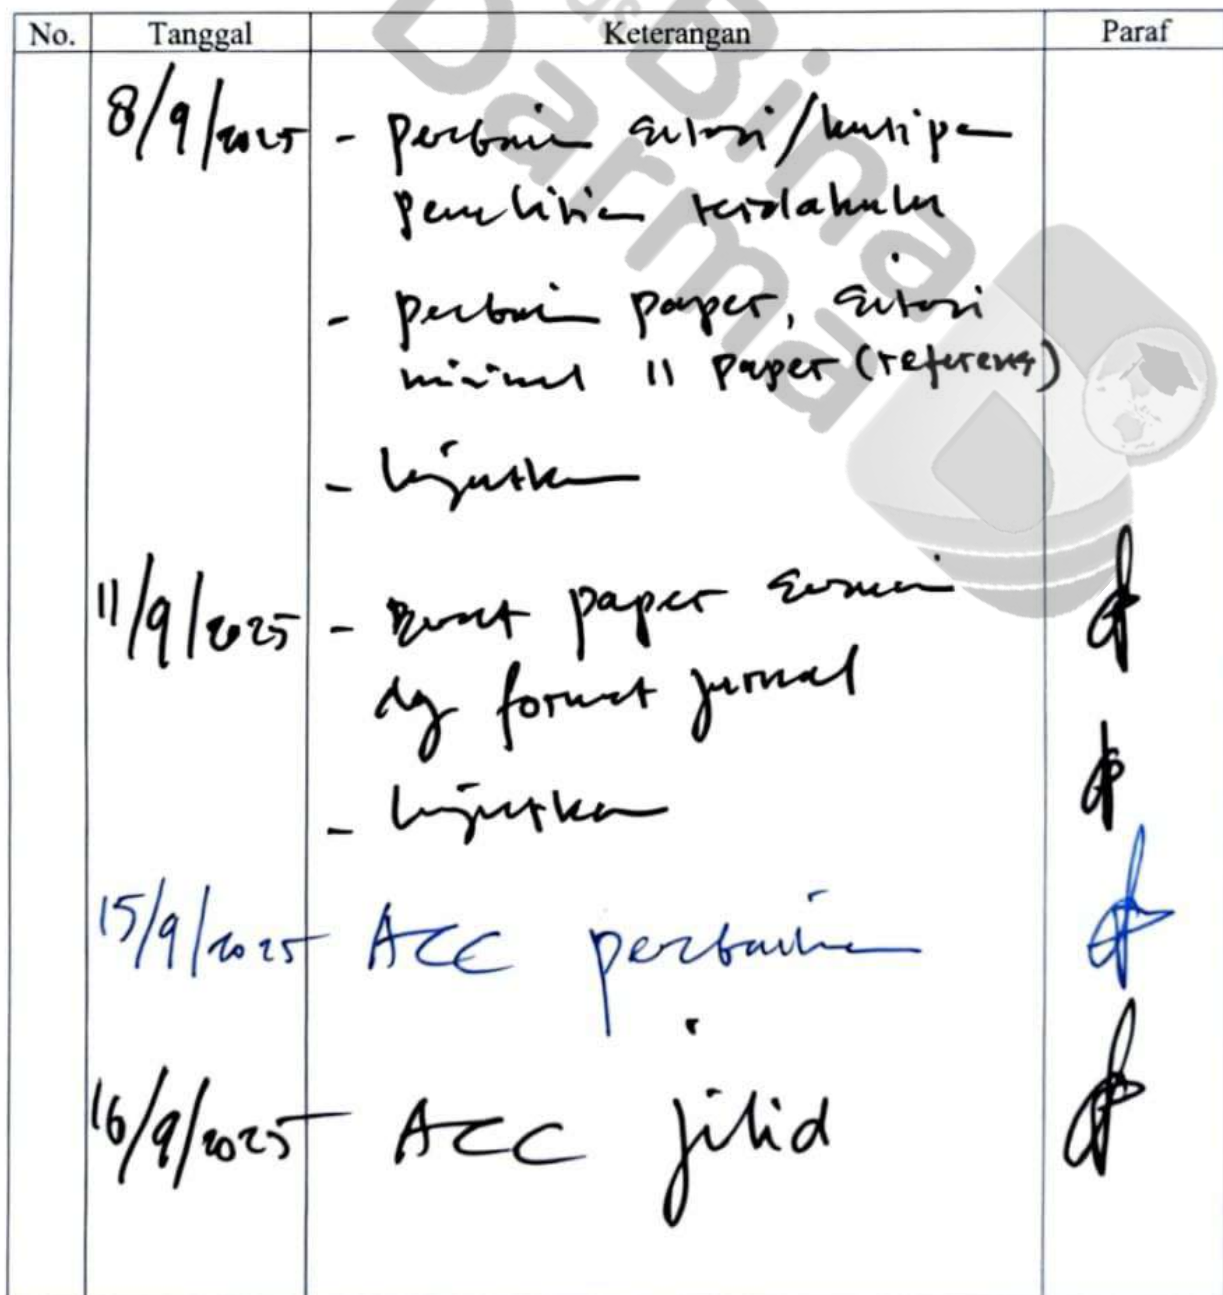 No. Tanggal Keterangan Paraf
8/9/2025 - perbaiki sitasi/kutipan
penelitian terdahulu
- perbaiki paper, sitasi
minimal 11 paper (referensi)
- lanjutkan
11/9/2025 - Buat paper sesuai
dg format jurnal
- lanjutkan
15/9/2025 ACC perbaikan
16/9/2025 ACC jilid
Bina
Darma